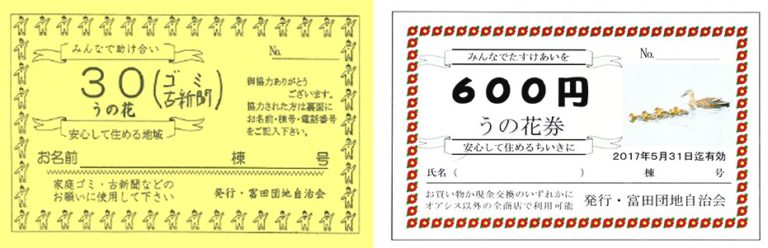 みんなで助け合い
No.
30(ゴミ
古新聞)
うの花
御協力ありがとう
ございます。
協力された方は裏面に
お名前・棟号・電話番号
をご記入下さい。
安心して住める地域
お名前 棟 号
家庭ゴミ・古新聞などの
お願いに使用して下さい
発行・富田団地自治会
みんなでたすけあいを
No.
600円
うの花券
安心して住めるちいきに
2017年5月31日迄有効
氏名( ) 棟 号
お買い物か現金交換のいずれかに
オアシス以外の全商店で利用可能
発行・富田団地自治会